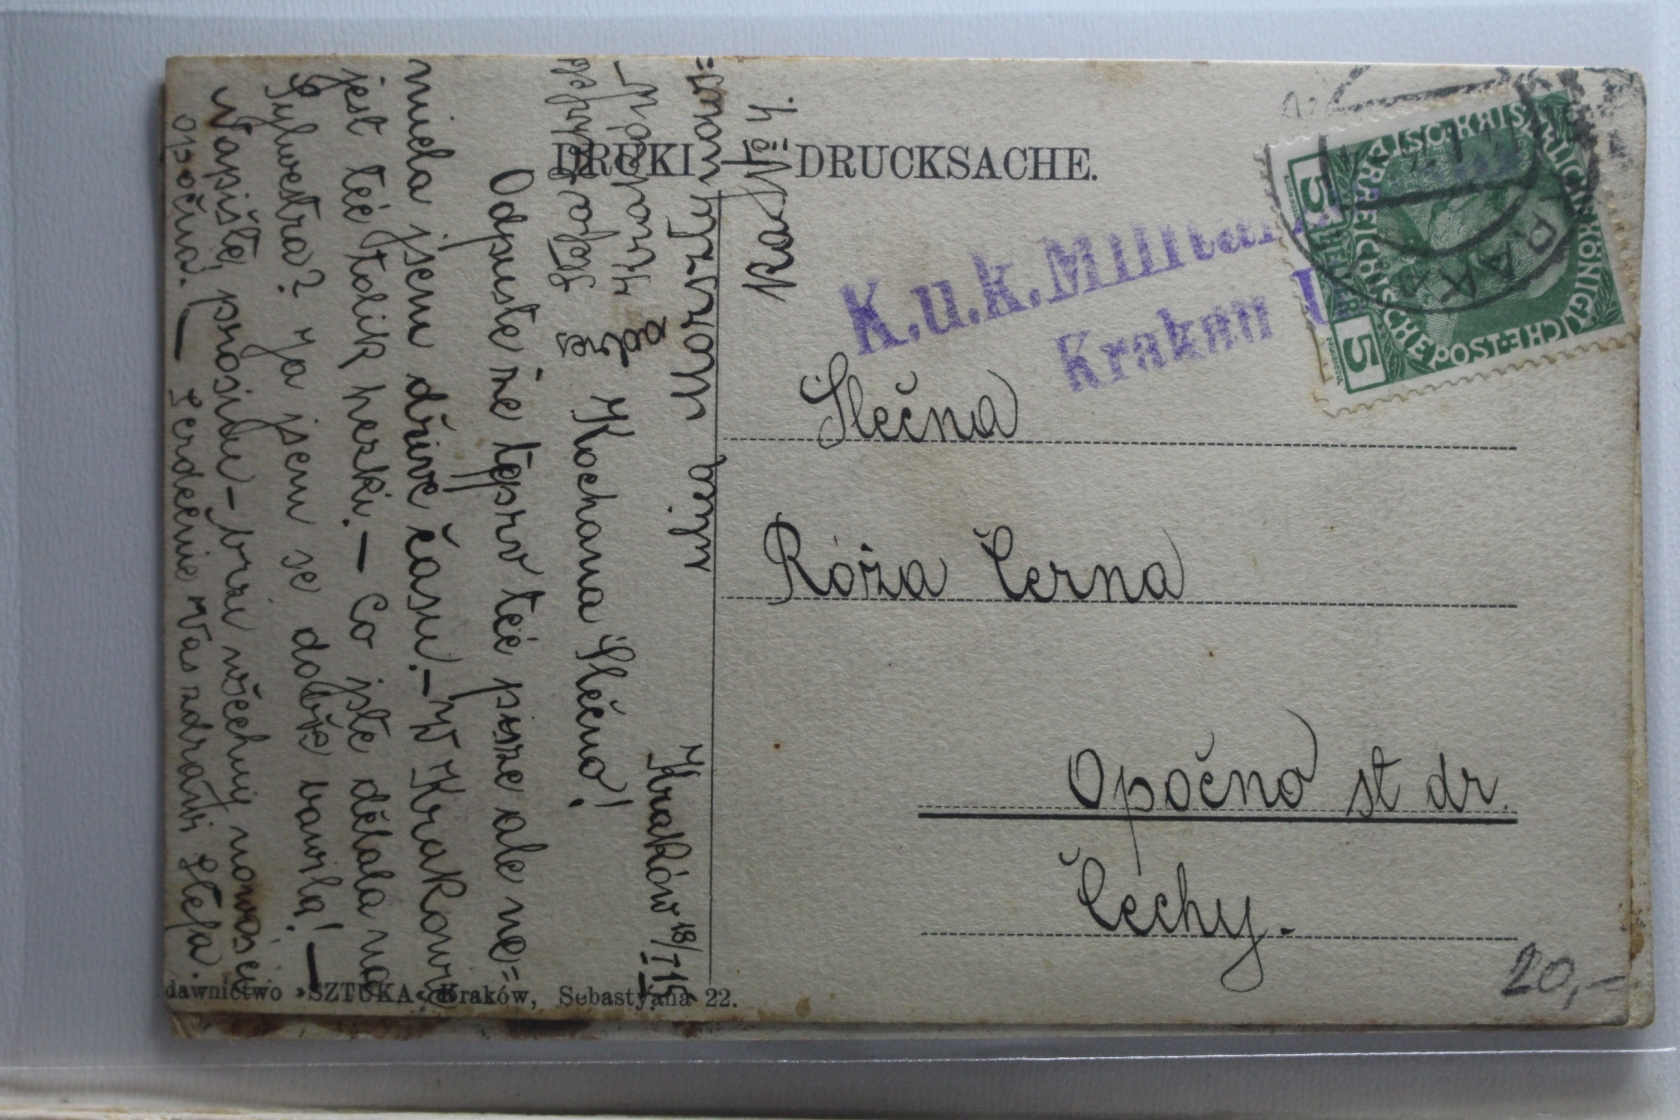 DRUKI — DRUCKSACHE.
K.u.k. Militär
Krakau
KAISERL. KÖNIGLICHE ÖSTERREICHISCHE POST
5 5
Slečna
Róża Černa
Opočno st dr.
Čechy.
20,-
Kraków 18/I 15
Kochana Slečno!
Odpuste že teprv teć pisze ale ne=
miela jsem dřive času. — W Krakowi
jest teć tolik hezki. — Co jste dělala na
Sylwestra? Ja jsem se dobře bawila! —
Napiště, prosilu — brzi wšechny nowosci
opočna! — Serdečnie Was zdrawi Stefa.
adres Stefa
Kraków
ulica Morsztynow=
ska № 4.
dawnictwo »SZTUKA« Kraków, Sebastyana 22.